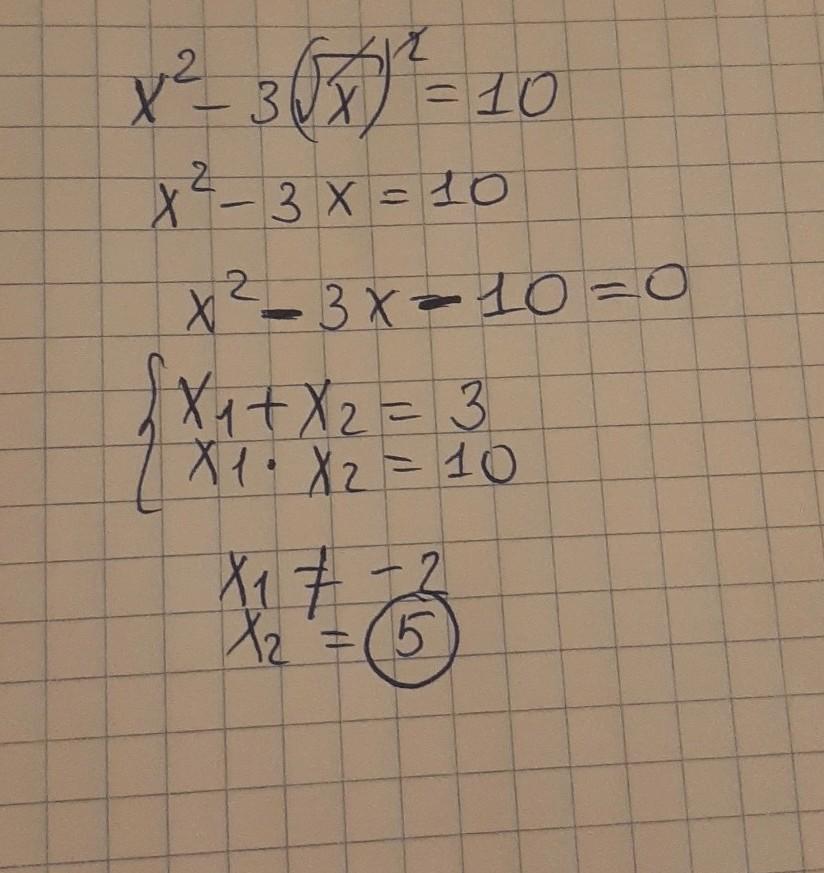 x² - 3(√x)² = 10
x² - 3x = 10
x² - 3x - 10 = 0
{ x₁ + x₂ = 3
x₁ · x₂ = 10
x₁ ≠ -2
x₂ = 5